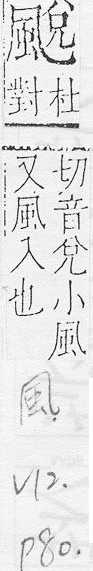 䬈杜
對
切音兌小風
又風入也
風.
V12.
p80.